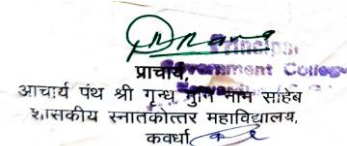 Principal
प्राचार्य,
Government College
आचार्य पंथ श्री गृन्ध मुनि नाम साहेब
शासकीय स्नातकोत्तर महाविद्यालय,
कवर्धा